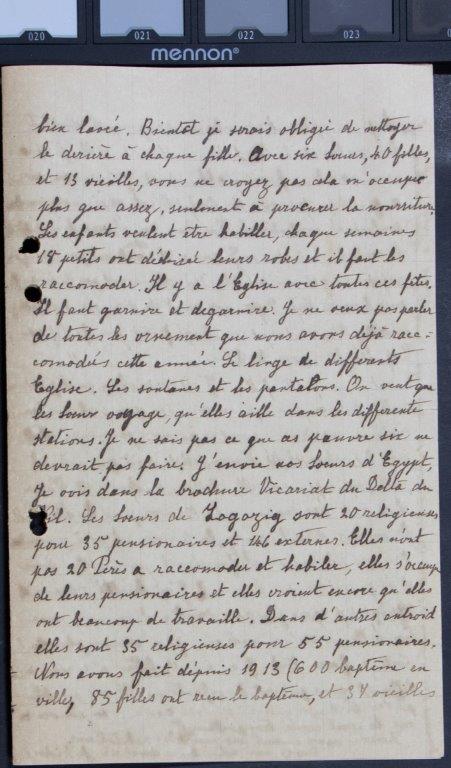 020 021 022 023
mennon®
bien lavé. Bientot je serais obligie de nettoyer
le derière à chaque fille. Avec six sœurs, 40 filles,
et 13 vieilles, vous ne croyez pas cela m'occupe
plus que assez, seulment a procurer la nourriture.
Les enfants veulent être habiller, chaque semaines
18 petits ont déchirer leurs robes et il faut les
raccomoder. Il y a l'Eglise avec toutes ces fêtes.
Il faut garnire et degarnire. Je ne veux pas parler
de toutes les ornement que nous avons déjà racc-
comodés cette année. Le linge de differents
Eglise. Les soutanes et les pantalons. On veut que
les sœur voyage, qu'elles aille dans les differente
stations. Je ne sais pas ce que as pauvre six ne
devrait pas faire. J'envie nos sœurs d'Egypt,
Je vois dans la brochure Vicariat du Delta du
Nil. Les sœurs de Zagazig sont 20 religieuses
pour 35 pensionaires et 146 externes. Elles n'ont
pas 20 Pères a raccomoder et habiler, elles s'occupe
de leurs pensionaires et elles croient encore qu'elles
ont beaucoup de travaille. Dans d'autres entroit
elles sont 35 religieuses pour 55 pensionaires.
Nous avons fait dépuis 1913 (600 baptême en
ville, 85 filles ont recu le bapteme, et 34 vieilles